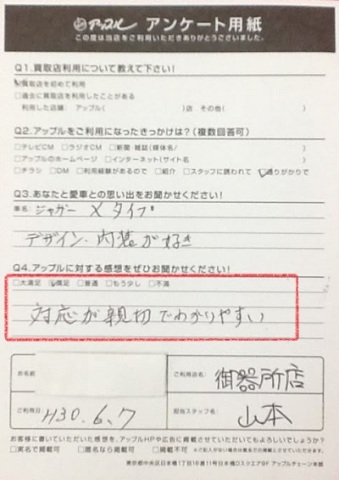 アップル アンケート用紙
この度は当店をご利用いただきありがとうございました。
Q1.買取店利用について教えて下さい!
☑買取店を初めて利用
□過去に買取店を利用したことがある
利用した店舗: アップル( )店 その他( )
Q2.アップルをご利用になったきっかけは?(複数回答可)
□テレビCM □ラジオCM □新聞・雑誌(媒体名/ )
□アップルのホームページ □インターネット(サイト名 )
□チラシ □DM □利用経験があるので □紹介 □スタッフに誘われて ☑通りがかりで
Q3.あなたと愛車との思い出をお聞かせください!
車名: ジャガー Xタイプ
デザイン・内装が好き
Q4.アップルに対する感想をぜひお聞かせください!
□大満足 ☑満足 □普通 □もう少し □不満
対応が親切でわかりやすい
お名前
ご利用店名: 御器所店
ご利用日 H30.6.7
担当スタッフ名: 山本
お客様に書いていただいた感想を、アップルHPや広告に掲載させていただいてもよろしいでしょうか?
□実名で掲載可 □匿名なら掲載可 □掲載不可
東京都中央区日本橋1丁目19番11号日本橋Dスクエア5F アップルチェーン本部